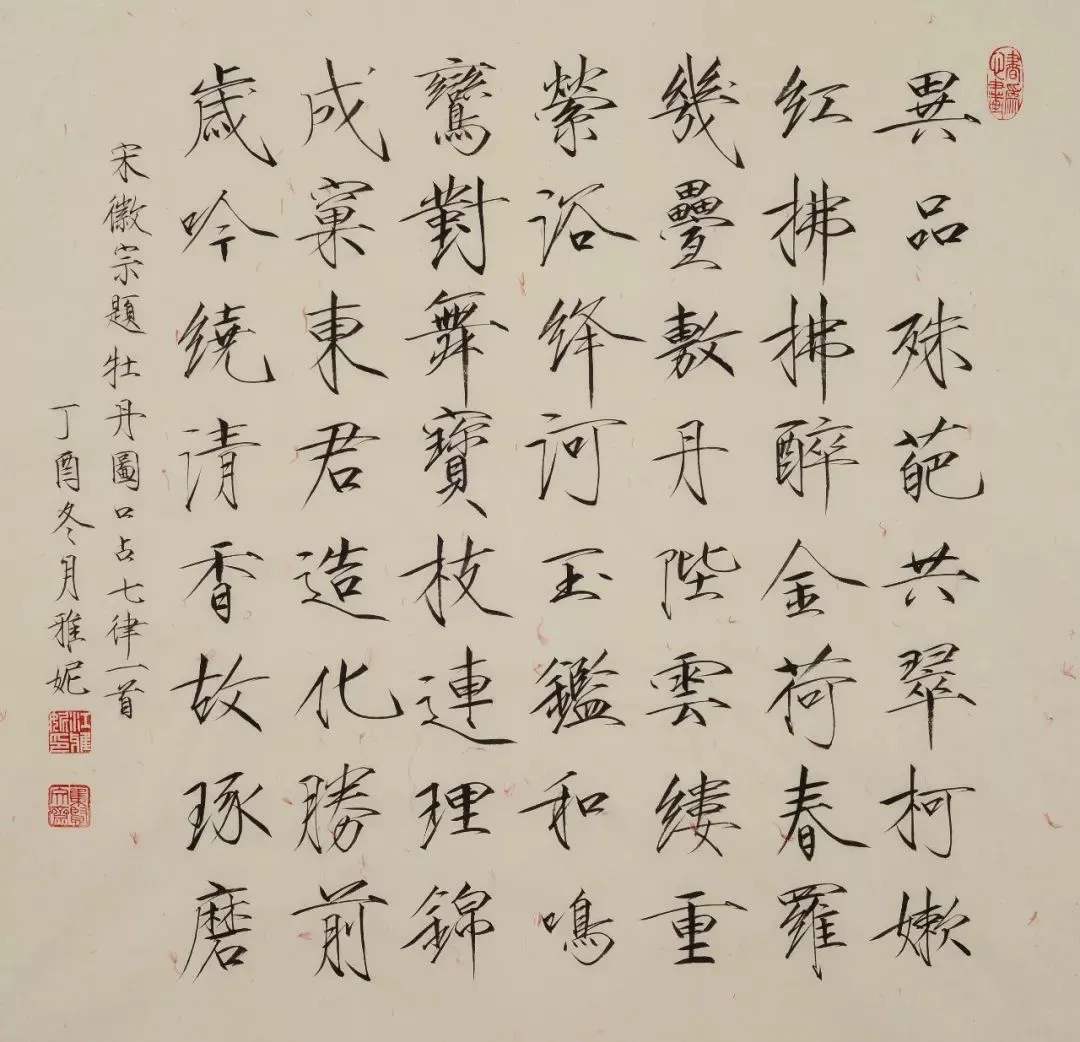 書為心畫
異品殊葩共翠柯嫩
红拂拂醉金荷春羅
幾疊敷丹陛雲縷重
縈浴绛河玉鑑和鳴
鸞對舞寶枝連理錦
成窠東君造化勝前
歲吟繞清香故琢磨
宋徽宗題牡丹圖口占七律一首
丁酉冬月雅妮